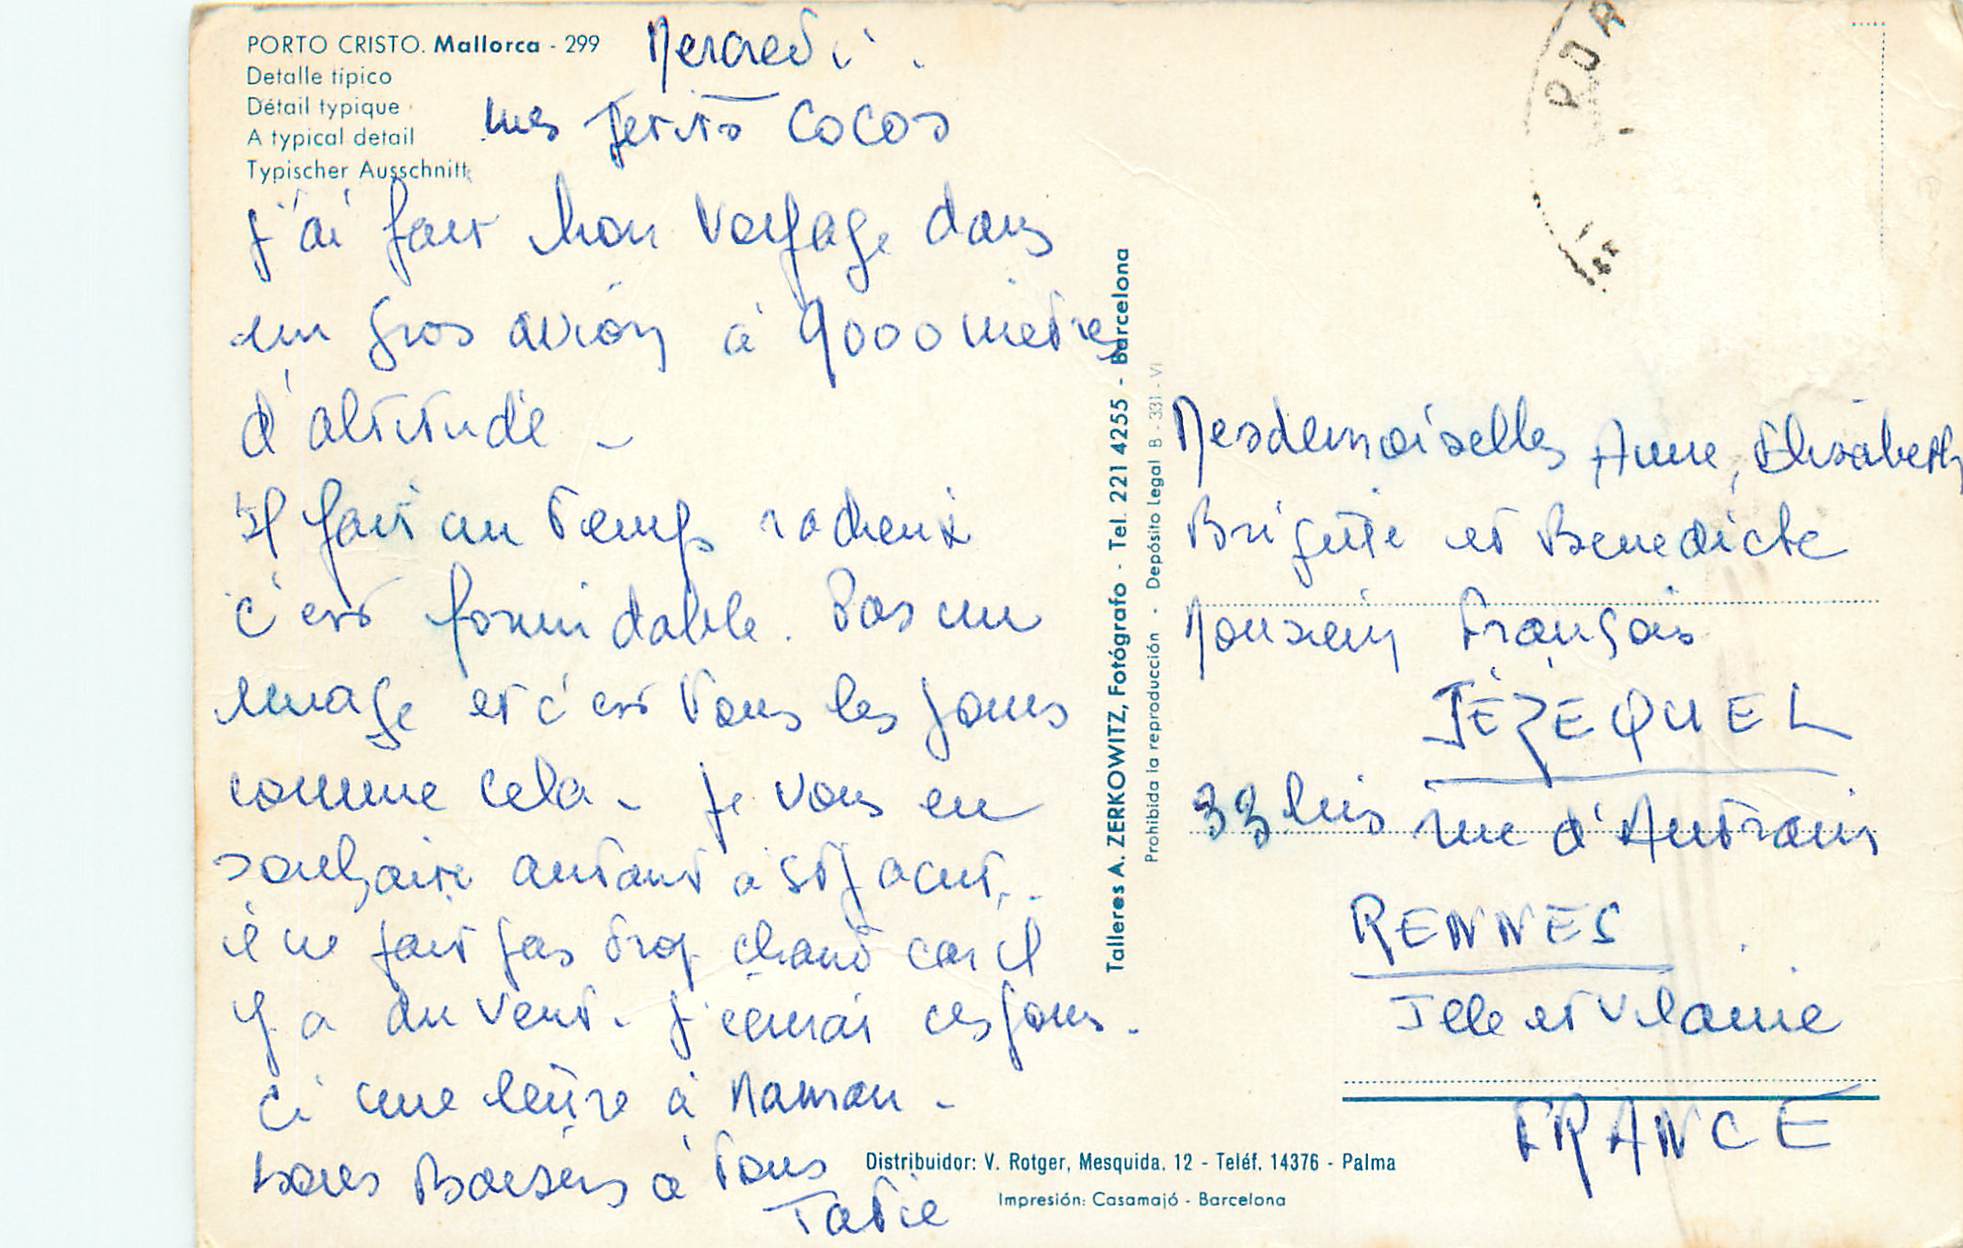 PORTO CRISTO. Mallorca - 299
Detalle típico
Détail typique
A typical detail
Typischer Ausschnitt
Mercredi.
mes petits cocos
j'ai fait bon voyage dans
un gros avion à 9000 mètres
d'altitude -
Il fait un temps radieux
c'est formidable. Pas un
nuage et c'est tous les jours
comme cela - je vous en
souhaite autant à St Jacut..
il ne fait pas trop chaud car il
y a du vent. j'écrirai ces jours.
ci une lettre à Maman -
bons Baisers à tous
Tatie
Talleres A. ZERKOWITZ, Fotógrafo - Tel. 221 4255 - Barcelona
Prohibida la reproducción - Depósito Legal B - 331 - VI
Mesdemoiselles Anne, Elisabeth
Brigitte et Benedicte
Monsieur François
JÉZEQUEL
33 bis rue d'Antrain
RENNES
Ille et Vilaine
FRANCE
Distribuidor: V. Rotger, Mesquida, 12 - Teléf. 14376 - Palma
Impresión: Casamajó - Barcelona